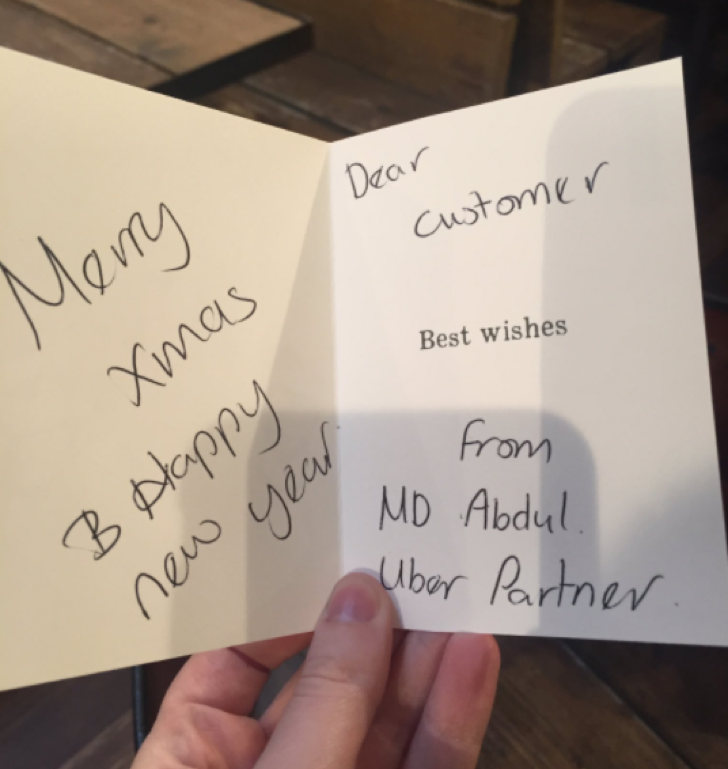 Merry
Xmas
& Happy
new year
Dear
customer
Best wishes
From
MD Abdul.
Uber Partner.